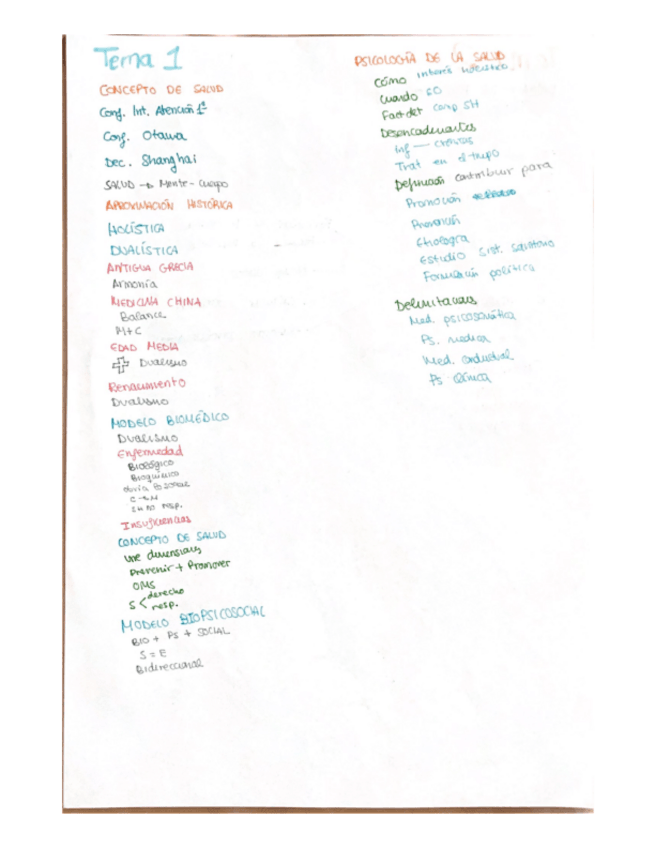 Tema 1
CONCEPTO DE SALUD
Conf. Int. Atención 1ª
Conf. Otawa
Dec. Shanghai
SALUD → Mente - Cuerpo
APROXIMACIÓN HISTÓRICA
HOLÍSTICA
DUALÍSTICA
ANTIGUA GRECIA
Armonía
MEDICINA CHINA
Balance
M+C
EDAD MEDIA
Dualismo
Renacimiento
Dualismo
MODELO BIOMÉDICO
Dualismo
Enfermedad
Biológico
Bioquímico
obvia
SH no resp.
Insuficiencias
CONCEPTO DE SALUD
une dimensions
Prevenir + Promover
OMS
S < derecho
resp.
MODELO BIOPSICOSOCIAL
BIO + PS + SOCIAL
S = E
Bidireccional
PSICOLOGÍA DE LA SALUD
Cómo interés holístico
Cuando 60
Fact det comp SH
Desencadenantes
Inf — crónicas
Trat en el tiempo
Definición contribuir para
Promoción
Prevención
Etiología
Estudio sist. sanitario
Formulación política
Delimitaciones
Med. psicosomática
Ps. medica
Med. conductual
Ps Clínica